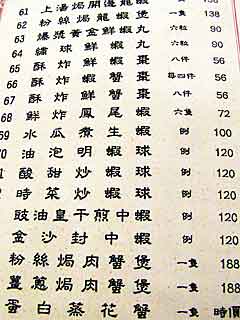 61 上湯焗開邊龍
62 粉絲焗龍蝦煲 一隻 138
63 爆漿黃金鮮蝦丸 六粒 90
64 繡球鮮蝦丸 六粒 90
65 酥炸鮮蝦棗 八件 56
66 酥炸鮮蟹棗 每四件 56
67 酥炸鮮蟹棗 八件 56
68 鮮炸鳳尾蝦 六隻 72
69 水瓜煮生蝦 例 100
70 油泡明蝦球 例 120
酸甜炒蝦球 例 120
時菜炒蝦球 例 120
豉油皇干煎中蝦 例 120
金沙封中蝦 例 120
粉絲焗肉蟹煲 一隻 188
薑蔥焗肉蟹煲 一隻 188
蛋白蒸花蟹 一隻 時價